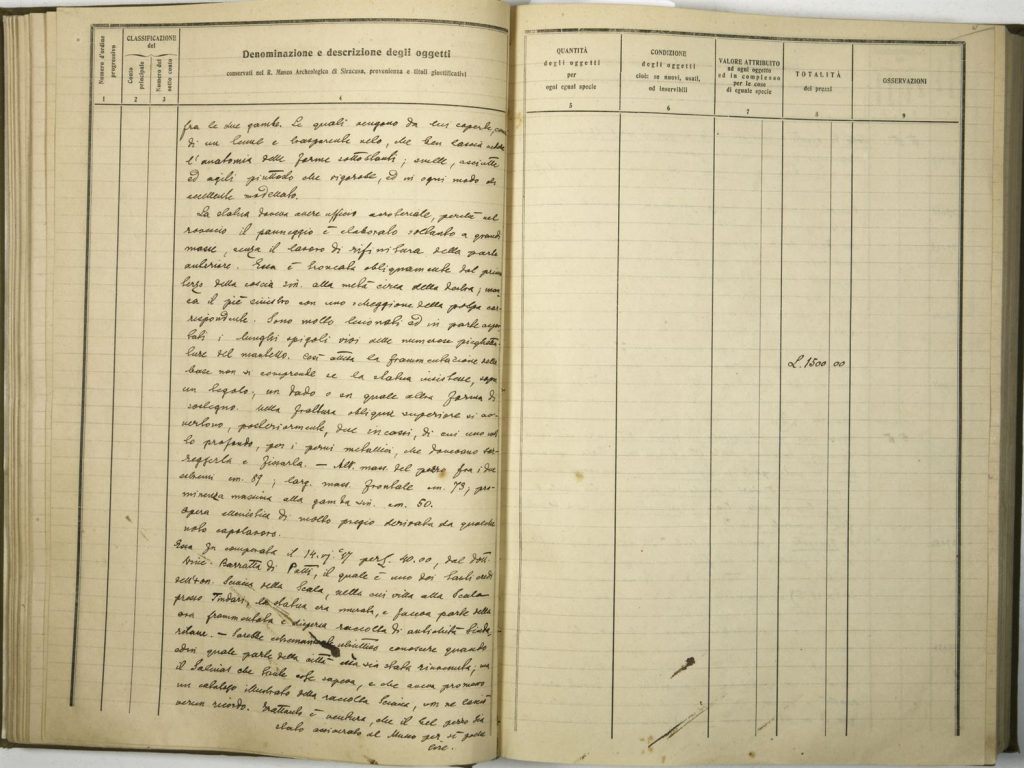 Numero d'ordine progressivo
CLASSIFICAZIONE del
Conto principale
Numero del sotto conto
Denominazione e descrizione degli oggetti
conservati nel R. Museo Archeologico di Siracusa, provenienza e titoli giustificativi
1 2 3 4
fra le due gambe. Le quali vengono da esso coperte, come
di un lieve e trasparente velo, che ben lascia vedere
l'anatomia delle forme sottostanti; snelle, asciutte
ed agili piuttosto che vigorose, ed in ogni modo di
eccellente modellato.
La statua doveva avere ufficio acroteriale, perché nel
rovescio il panneggio è elaborato soltanto a grandi
masse, senza il lavoro di rifinitura della parte
anteriore. Essa è troncata obliquamente dal primo
terzo della coscia sin. alla metà circa della destra; man
ca il piè sinistro con uno scheggione della polpa cor
rispondente. Sono molto lesionati ed in parte aspor
tati i lunghi spigoli vivi delle numerose pieghetta
ture del mantello. Così attesa la frammentazione della
base non si comprende se la statua insistesse, sopra
un segolo, un dado o su quale altra forma di
sostegno. Nella frattura obliqua superiore si av
vertono, posteriormente, due incassi, di cui uno mol
to profondo, per i perni metallici, che dovevano sor
reggerla e fissarla. — Alt. mass. del pezzo fra i due
estremi cm. 89; larg. mass. frontale cm. 73; pro
minenza massima alla gamba sin. cm. 50.
Opera ellenistica di molto pregio derivata da qualche
noto capolavoro.
Essa fu comperata il 14.vj.°27 per £. 40.00, dal dott.
Barratta di Patti, il quale è uno dei tanti eredi
dell'on. Sciacca della Scala, nella cui villa alla Scala
presso Tindari, la statua era murata, e faceva parte della
ora frammentata e dispersa raccolta di antichità tinda
ritane. — Sarebbe estremamente obiettivo conoscere quando
ed in quale parte della città essa sia stata rinvenuta; ma
il Salinas che tante cose sapeva, e che aveva promesso
un catalogo illustrato della raccolta Sciacca, non ne lasciò
verun ricordo. Frattanto è ventura, che il bel pezzo sia
stato assicurato al Museo per sì poche
lire.
QUANTITÀ degli oggetti per ogni egual specie
CONDIZIONE degli oggetti cioè: se nuovi, usati, od inservibili
VALORE ATTRIBUITO ad ogni oggetto ed in complesso per le cose di eguale specie
TOTALITÀ dei prezzi
OSSERVAZIONI
5 6 7 8 9
L. 1500 00